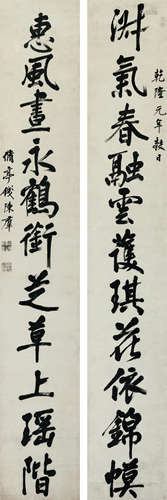 乾隆元年穀日
淑氣春融雲護琪花依錦幙
惠風晝永鶴銜芝草上瑤階
脩亭錢陳羣